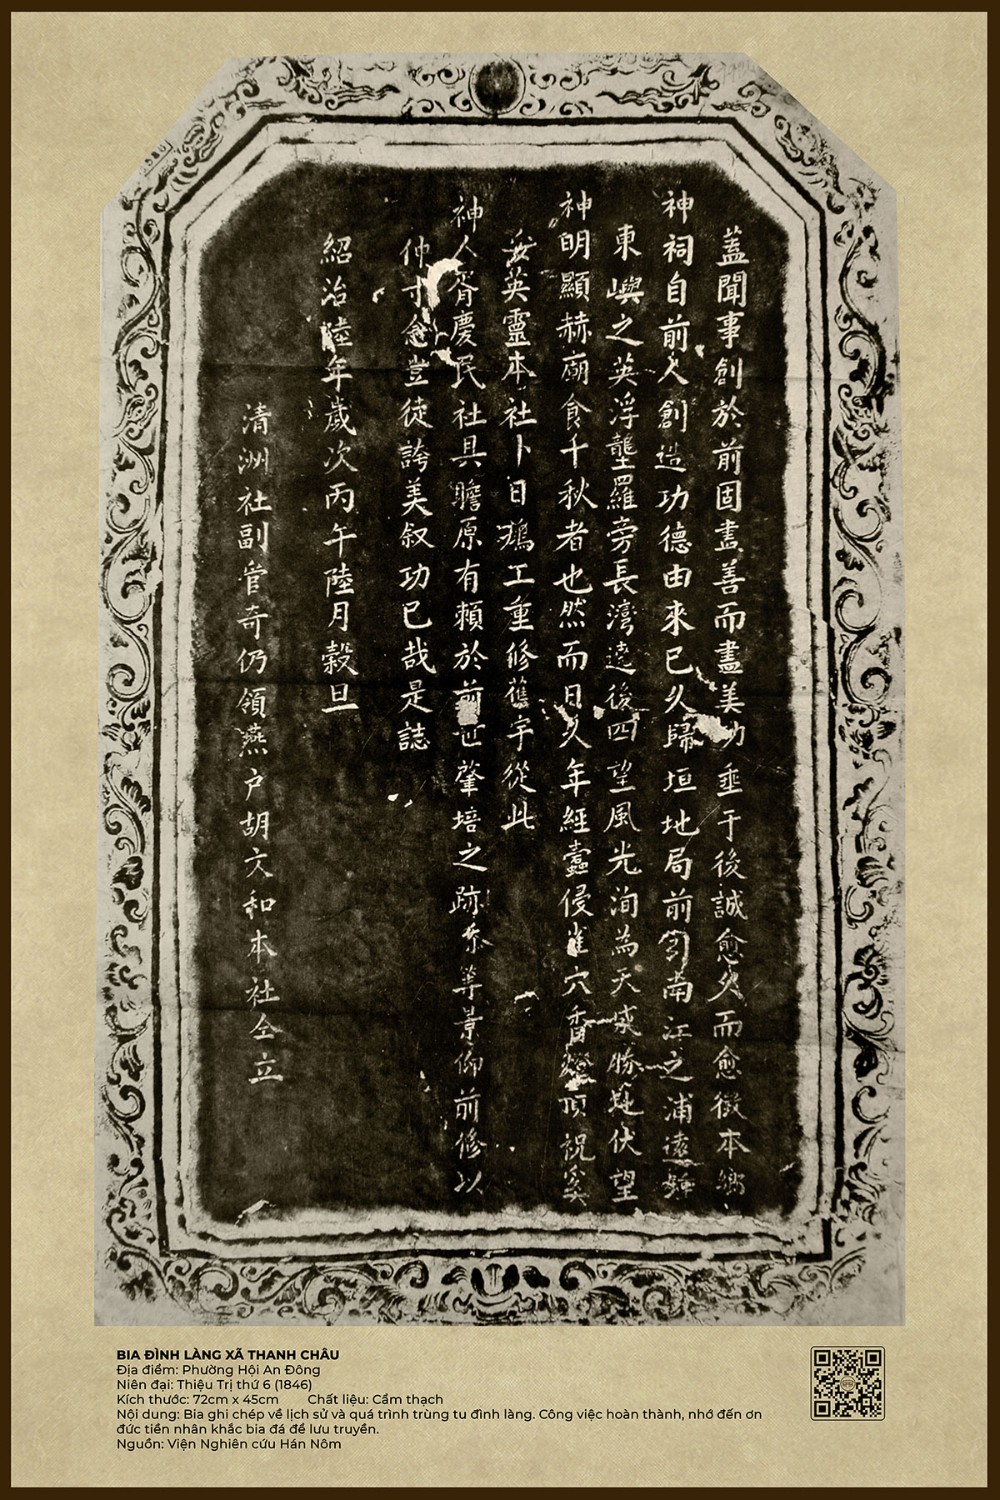 蓋聞事創於前固盡善而盡美功垂于後誠愈久而愈徵本鄉
神祠自前人創造功德由來已久歸垣地局前向南江之浦遶
東嶼之英浮龍羅旁長灣遶後四望風光洵為天成勝 伏望
神明顯赫廟食千秋者也然而日久年經蠹侵雀穴香 頂祝奚
妥英靈本社卜日鳩工重修舊宇從此
神人胥慶民社具瞻原有賴於前世肇培之跡 等景仰前修以
仲寸念豈徒誇美叙功已哉是誌
紹治陸年歲次丙午陸月穀旦
清洲社副管奇仍領燕户胡文和本社仝立
BIA ĐÌNH LÀNG XÃ THANH CHÂU
Địa điểm: Phường Hội An Đông
Niên đại: Thiệu Trị thứ 6 (1846)
Kích thước: 72cm x 45cm Chất liệu: Cẩm thạch
Nội dung: Bia ghi chép về lịch sử và quá trình trùng tu đình làng. Công việc hoàn thành, nhớ đến ơn
đức tiền nhân khắc bia đá để lưu truyền.
Nguồn: Viện Nghiên cứu Hán Nôm